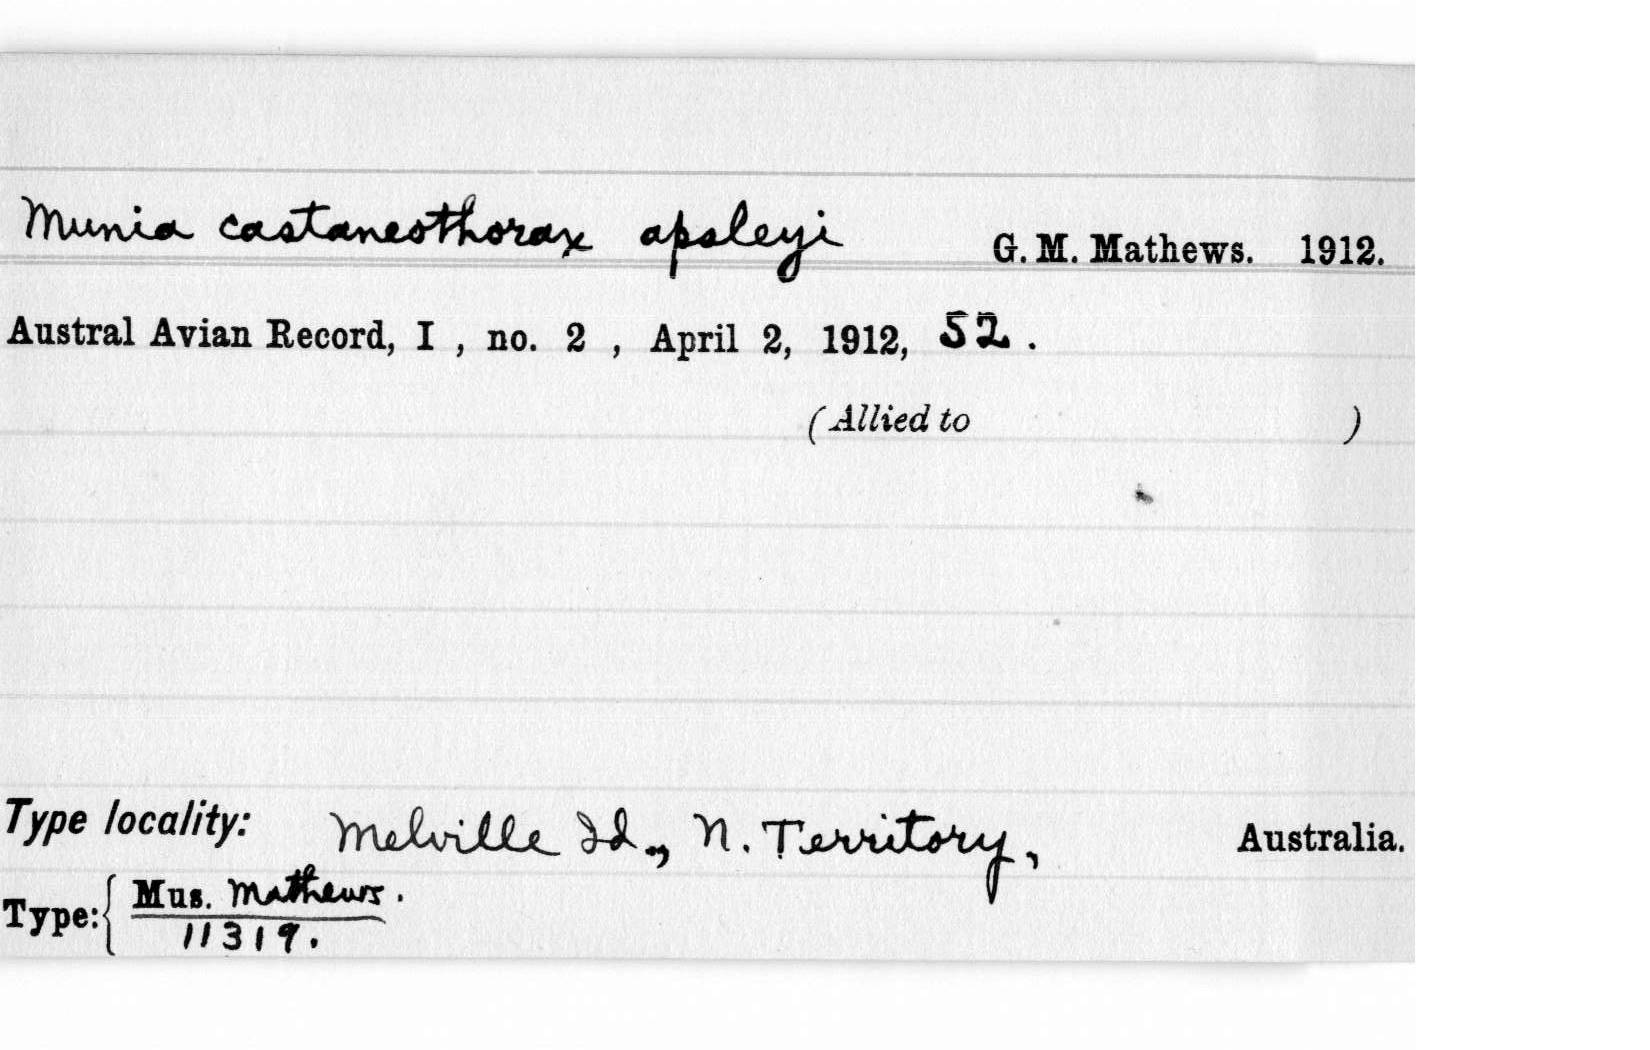 Munia castaneothorax apsleyi G. M. Mathews. 1912.
Austral Avian Record, I , no. 2 , April 2, 1912, 52.
(Allied to )
Type locality: Melville Id., N. Territory, Australia.
Type: { Mus. Mathews.
11319.